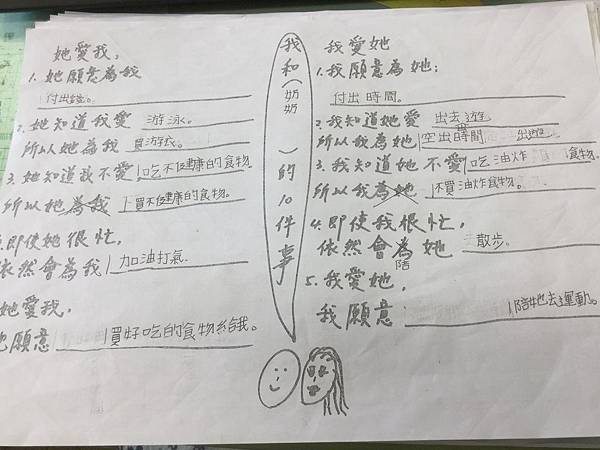 她愛我,
1. 她願意為我
付出錢。
2. 她知道我愛 游泳。
所以她為我 買游衣。
3. 她知道我不愛 吃不健康的食物
所以她為我 不買不健康的食物。
4. 即使她很忙,
依然會為我 加油打氣
她愛我,
她願意 買好吃的食物給我。
我和(奶奶)的10件事
我愛她
1. 我願意為她:
付出時間。
2. 我知道她愛 出去遊
所以我為她 空出時間 出遊
3. 我知道她不愛 吃油炸食物。
所以我為她 不買油炸食物。
4. 即使我很忙,
依然會為她 散步。
陪
5. 我愛她,
我願意 陪她去運動。